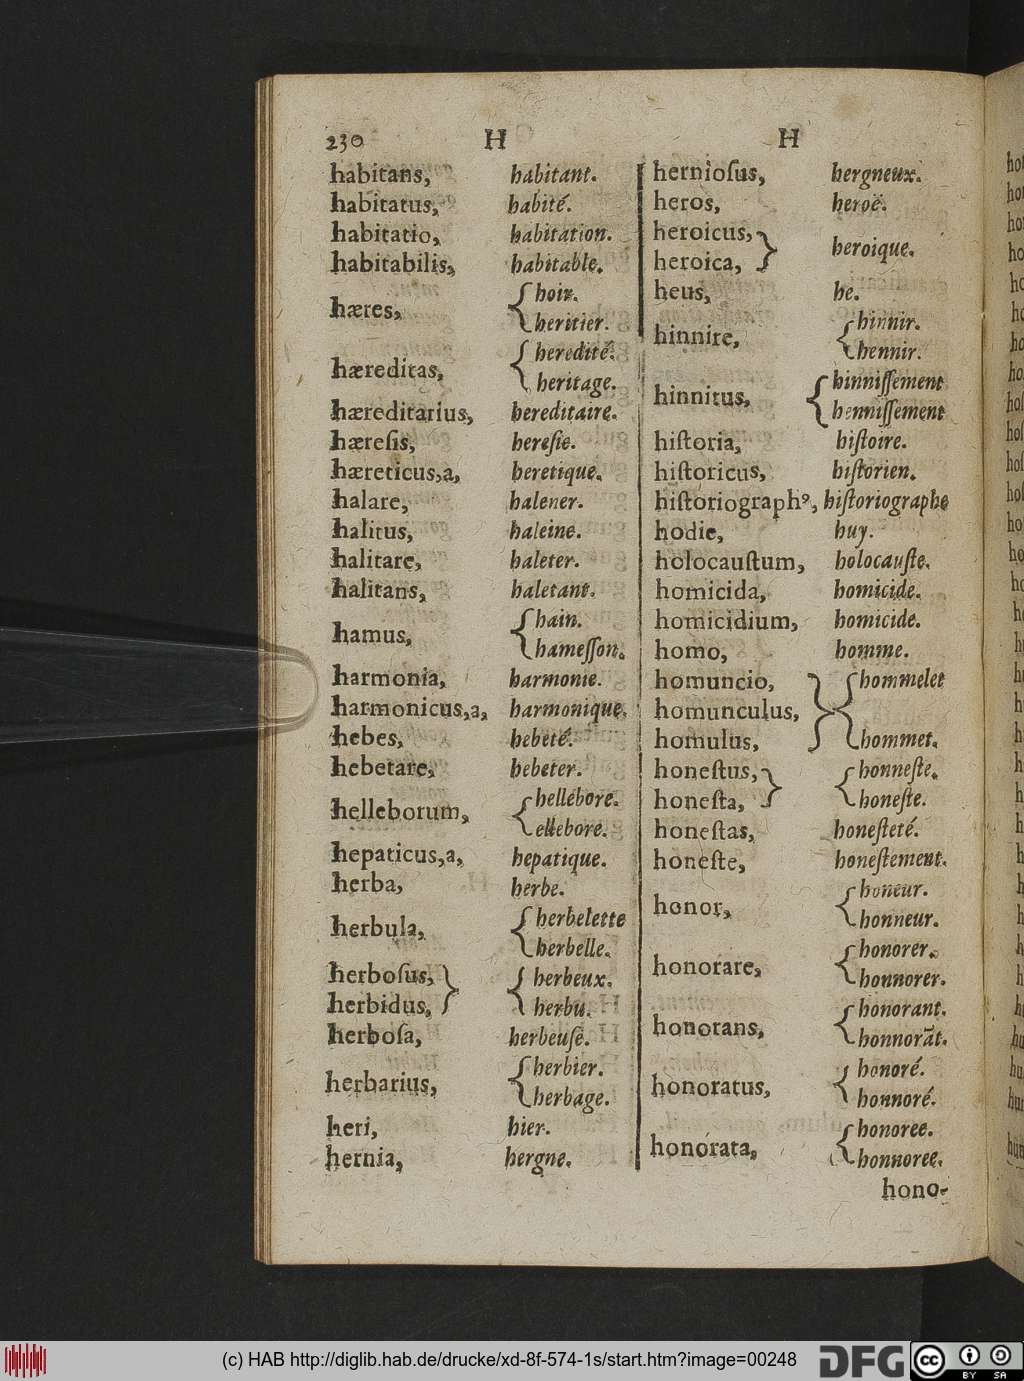 230 H H
habitans, habitant.
habitatus, habité.
habitatio, habitation.
habitabilis, habitable.
hæres, hoir.
heritier.
hæreditas, heredité.
heritage.
hæreditarius, hereditaire.
hæresis, heresie.
hæreticus,a, heretique.
halare, halener.
halitus, haleine.
halitare, haleter.
halitans, haletant.
hamus, hain.
hameſſon.
harmonia, harmonie.
harmonicus,a, harmonique.
hebes, hebeté.
hebetare, hebeter.
helleborum, hellebore.
ellebore.
hepaticus,a, hepatique.
herba, herbe.
herbula, herbelette
herbelle.
herboſus, herbeux.
herbidus, herbu.
herboſa, herbeuſe.
herbarius, herbier.
herbage.
heri, hier.
hernia, hergne.
hernioſus, hergneux.
heros, heroë.
heroicus,
heroica, heroique.
heus, he.
hinnire, hinnir.
hennir.
hinnitus, hinniſſement
henniſſement
hiſtoria, hiſtoire.
hiſtoricus, hiſtorien.
hiſtoriographꝰ, hiſtoriographe
hodie, huy.
holocauſtum, holocauſte.
homicida, homicide.
homicidium, homicide.
homo, homme.
homuncio, hommelet
homunculus,
homulus, hommet.
honeſtus, honneſte.
honeſta, honeſte.
honeſtas, honeſteté.
honeſte, honeſtement.
honor, honeur.
honneur.
honorare, honorer.
honnorer.
honorans, honorant.
honnorãt.
honoratus, honoré.
honnoré.
honorata, honoree.
honnoree.
hono-
(c) HAB http://diglib.hab.de/drucke/xd-8f-574-1s/start.htm?image=00248
DFG
cc BY SA